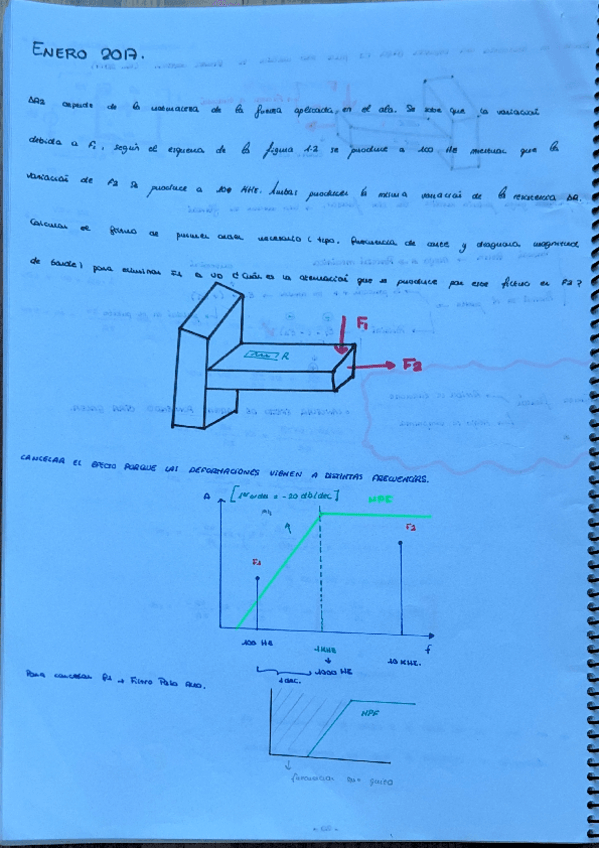 ENERO 2017.
ΔR2 depende de la naturaleza de la fuerza aplicada en el ala. Se sabe que la variación
debida a F1, según el esquema de la figura 1.2 se produce a 100 Hz mientras que la
variación de F2 se produce a 10 KHz. Ambas producen la misma variación de la resistencia ΔR.
Calcular el filtro de primer orden necesario (tipo, frecuencia de corte y diagrama magnitud
de bode) para eliminar F1 a ¿Cuál es la atenuación que se produce por este filtro en F2?
F1
R
F2
CANCELAR EL EFECTO PORQUE LAS DEFORMACIONES VIENEN A DISTINTAS FRECUENCIAS.
A [1er orden = -20 db/dec] HPF
F2
F1
100 HZ 1KHZ 10 KHZ. f
1000 HZ
1 DEC.
Para cancelar F1 → Filtro Paso Alto.
HPF